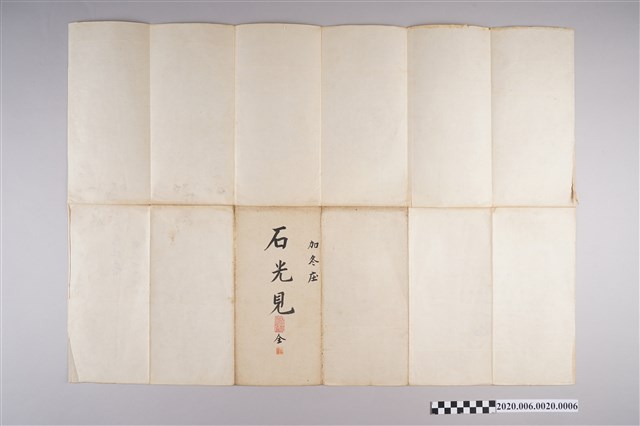 加冬庄
石光見
全
2020.006.0020.0006